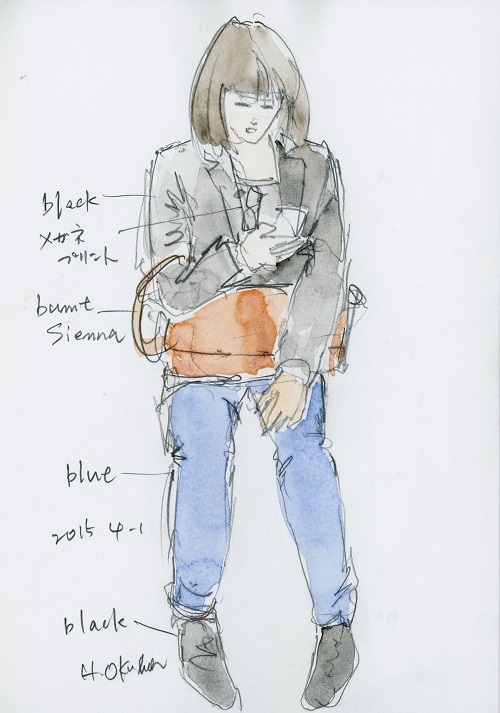 black
メガネ
プリント
burnt
Sienna
blue
2015 4-1
black